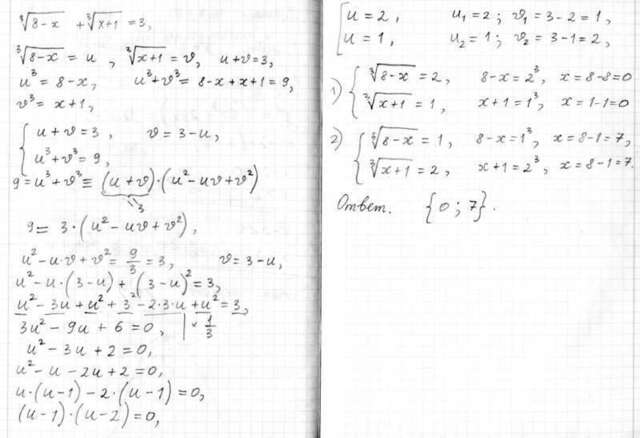 ∛8-x + ∛x+1 = 3,
∛8-x = u, ∛x+1 = v, u+v=3,
u³ = 8-x, u³+v³ = 8-x+x+1=9,
v³ = x+1,
{ u+v=3, v=3-u,
u³+v³=9,
9=u³+v³≡(u+v)·(u²-uv+v²)
3
9=3·(u²-uv+v²),
u²-u·v+v²=9/3=3, v=3-u,
u²-u·(3-u)+(3-u)²=3,
u²-3u+u²+3²-2·3·u+u²=3,
3u²-9u+6=0, | × 1/3
u²-3u+2=0,
u²-u-2u+2=0,
u·(u-1)-2·(u-1)=0,
(u-1)·(u-2)=0,
[ u=2, u₁=2; v₁=3-2=1,
u=1, u₂=1; v₂=3-1=2,
1) { ∛8-x = 2, 8-x=2³, x=8-8=0
∛x+1 = 1, x+1=1³, x=1-1=0
2) { ∛8-x = 1, 8-x=1³, x=8-1=7,
∛x+1 = 2, x+1=2³, x=8-1=7.
Ответ. {0;7}.